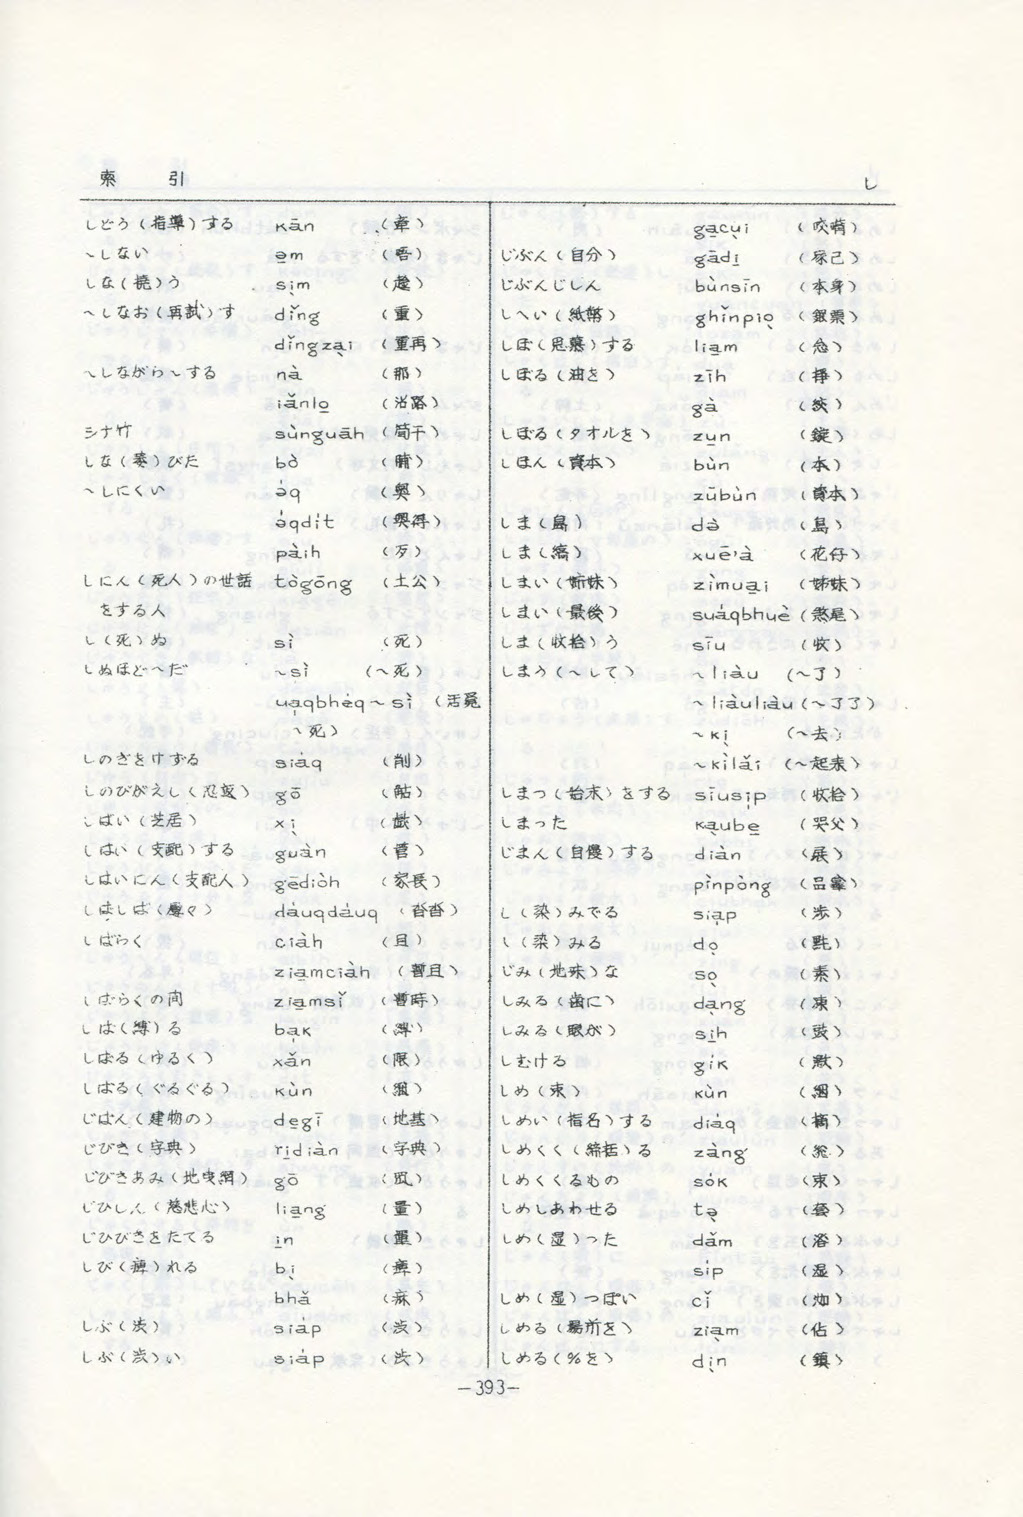 索 引
し
しどう(指導)する kān (牽)
～しない a̲m (唔)
しな(撓)う si̩m (趁)
～しなお(再試)す dǐng (重)
dǐngza̩i (重再)
～しながら～する nà (那)
iǎnlo̲ (沿路)
シナ竹 sùnguāh (筍干)
しな(萎)びた bò
～しにくい
(奥得)
pàih (歹)
しにん(死人)の世話 tògōng (土公)
をする人
し(死)ぬ sì (死)
しぬほど～だ ～sì (～死)
～sì (活
～死)
しのぎをけずる siáq (削)
しのびがえし(忍返) gō
しばい(芝居) xi̩ (戯)
しはい(支配)する guàn (管)
しはいにん(支配人) gēdiòh (家長)
しばしば(屢々) dáuqdáuq (沓沓)
しばらく ciàh (且)
zia̲mciàh (暫且)
しばらくの間 zia̲msǐ (暫時)
しば(縛)る ba̩k (縛)
しばる(ゆるく) xǎn (限)
しばる(ぐるぐる) kùn
じばん(建物の) de̲gī (地基)
じびき(字典) ri̲diàn (字典)
じびきあみ(地曳網) gō
じひしん(慈悲心) lia̲ng (量)
じひびきをたてる i̲n
しび(痺)れる bi̩ (痺)
bhǎ (痲)
しぶ(渋) siáp (渋)
しぶ(渋)い siáp (渋)
ga̲cu̩i
じぶん(自分) gādi̲ (家己)
じぶんじしん bùnsīn (本身)
しへい(紙幣) ghǐnpio̩ (銀票)
しぼ(思慕)する lia̲m (念)
しぼる(油を) zīh
gà (絞)
しぼる(タオルを) zu̲n
しほん(資本) bùn (本)
zūbùn (資本)
しま(島) (島)
しま(縞) xuē'à (花仔)
しまい(姉妹) zìmua̲i (姉妹)
しまい(最後) suáqbhuè (煞尾)
しま(収拾)う sīu (收)
しまう(～して) ～liàu (～了)
～liàuliàu (～了了)
～ki̩ (～去)
～kìlǎi (～起来)
しまつ(始末)をする sīusi̩p (收拾)
しまった ka̩ube̲ (哭父)
じまん(自慢)する diàn (展)
pìnpòng (品
し(染)みでる sia̩p (渉)
し(染)みる do̩
じみ(地味)な so̩ (素)
しみる(歯に) da̩ng (凍)
しみる(眼が) si̲h (豉)
しむける gík (激)
しめ(束) kùn (綑)
しめい(指名)する diáq (摘)
しめくく(締括)る zàng (総)
しめくくるもの sók (束)
しめしあわせる (套)
しめ(湿)った dǎm
síp (湿)
しめ(湿)っぽい cǐ
しめる(場所を) zia̩m (佔)
しめる(%を) di̩n (鎮)
—393—